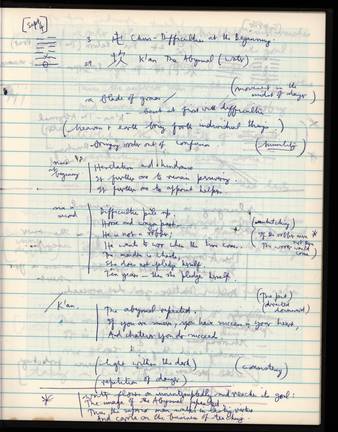 [Sept 4]
3 屯 Chun - Difficulties at the Beginning
29. K'an The Abysmal (Water)
(movement in the midst of danger)
a Blade of grass
but at first with difficulties
(heaven & earth bring forth individual things)
Bringing order out of confusion (humility)
nine beginning
Hesitation and hindrance
It furthers one to remain persevering
It furthers one to appoint helpers
in second
Difficulties pile up,
Horse and wagon part.
He is not a robber;
He wants to woo when the time comes.
The maiden is chaste,
She does not pledge herself
Ten years - then she pledges herself.
K'an.
(The pit)
The abysmal repeated.
If you are sincere, you have success in your heart,
And whatever you do succeeds
(light within the dark)
(repetition of danger)
* Water flows on uninterruptedly and reaches its goal:
The image of the Abysmal repeated.
Thus the superior man walks in lasting virtue
And carries on the business of teaching.